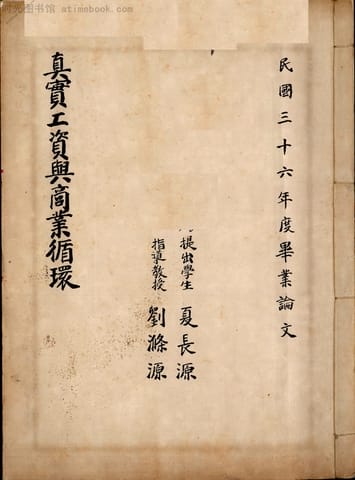 民國三十六年度畢業論文
提出學生 夏長源
指導教授 劉滌源
真實工資與商業循環